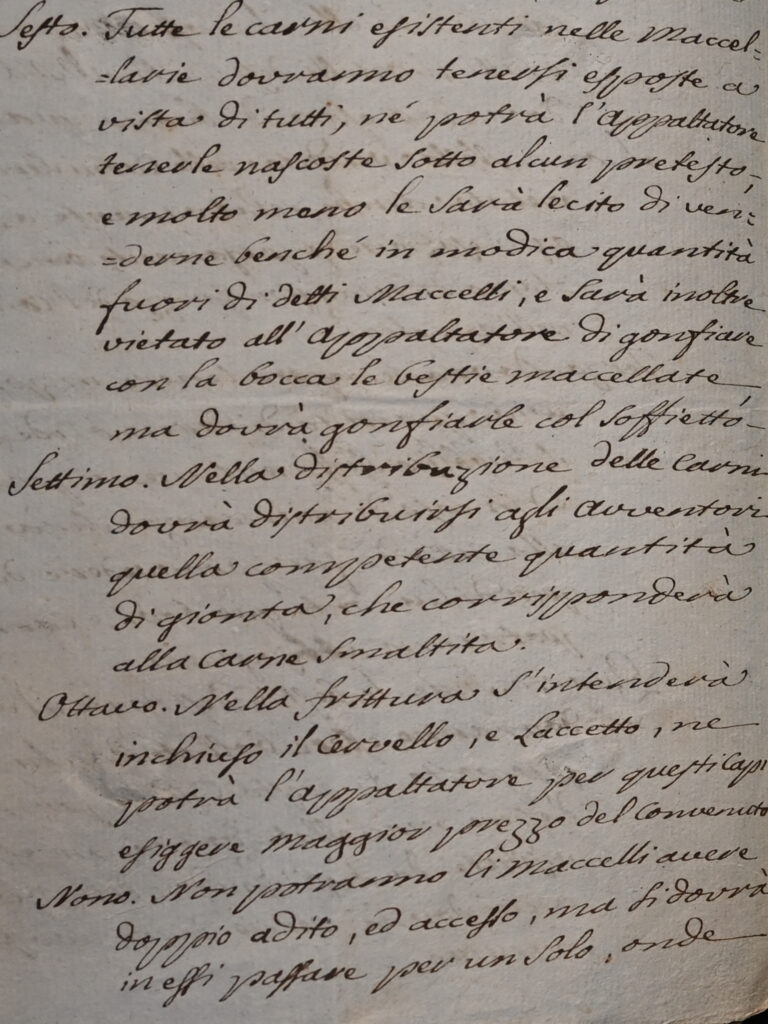 Sesto. Tutte le carni esistenti nelle Maccel=
=larie dovranno tenersi esposte a
vista di tutti, né potrà l'appaltatore
tenerle nascoste sotto alcun pretesto,
e molto meno le sarà lecito di ven=
=derne benché in modica quantità
fuori di detti Maccelli, e sarà inoltre
vietato all'appaltatore di gonfiare
con la bocca le bestie maccellate
ma dovrà gonfiarle col soffietto.
Settimo. Nella distribuzione delle carni
dovrà distribuirsi agli avventori
quella competente quantità
di gionta, che corrisponderà
alla carne smaltita.
Ottavo. Nella frittura s'intenderà
inchiuso il cervello, e Laccetto, ne
potrà l'appaltatore per questi capi
esiggere maggior prezzo del convenuto
Nono. Non potranno li Maccelli avere
doppio adito, ed accesso, ma si dovrà
in essi passare per un solo, onde